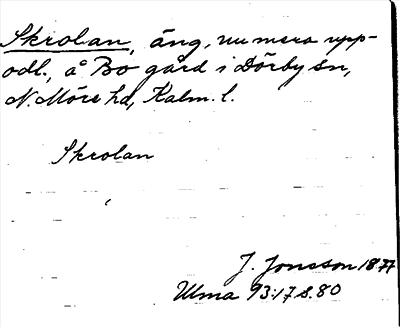 Skrolan, äng, numera upp-
odl., å Bo gård i Dörby sn,
N. Möre hd, Kalm. l.
Skrolan
J. Jonsson 1877
Ulma 93:17 s. 80